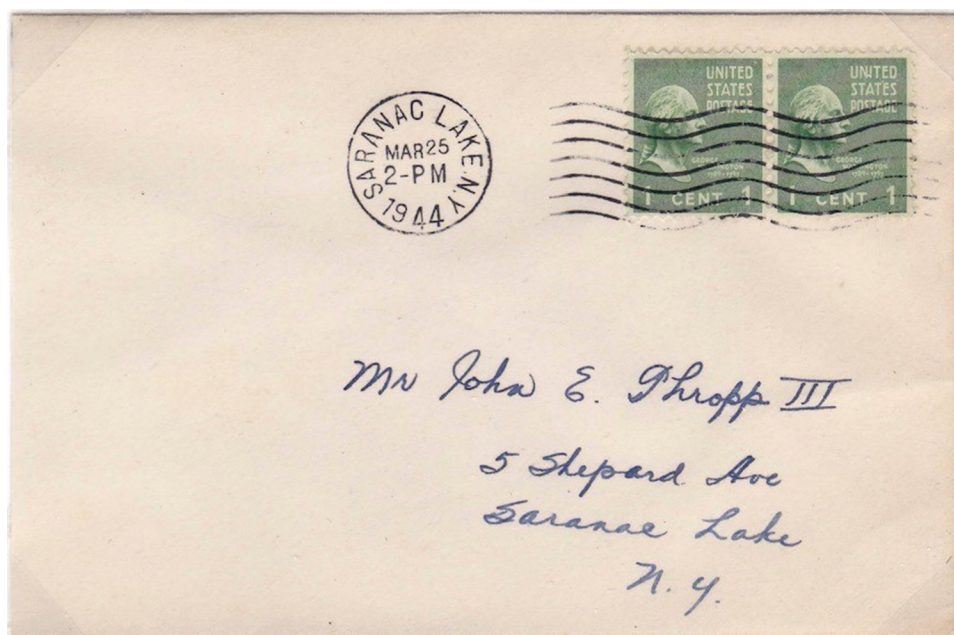 SARANAC LAKE. N.Y.
MAR 25
2-PM
1944
UNITED
STATES
POSTAGE
GEORGE
WASHINGTON
1789-1797
1 CENT 1
UNITED
STATES
POSTAGE
GEORGE
WASHINGTON
1789-1797
1 CENT 1
Mr John E. Thropp III
5 Shepard Ave
Saranac Lake
N.Y.